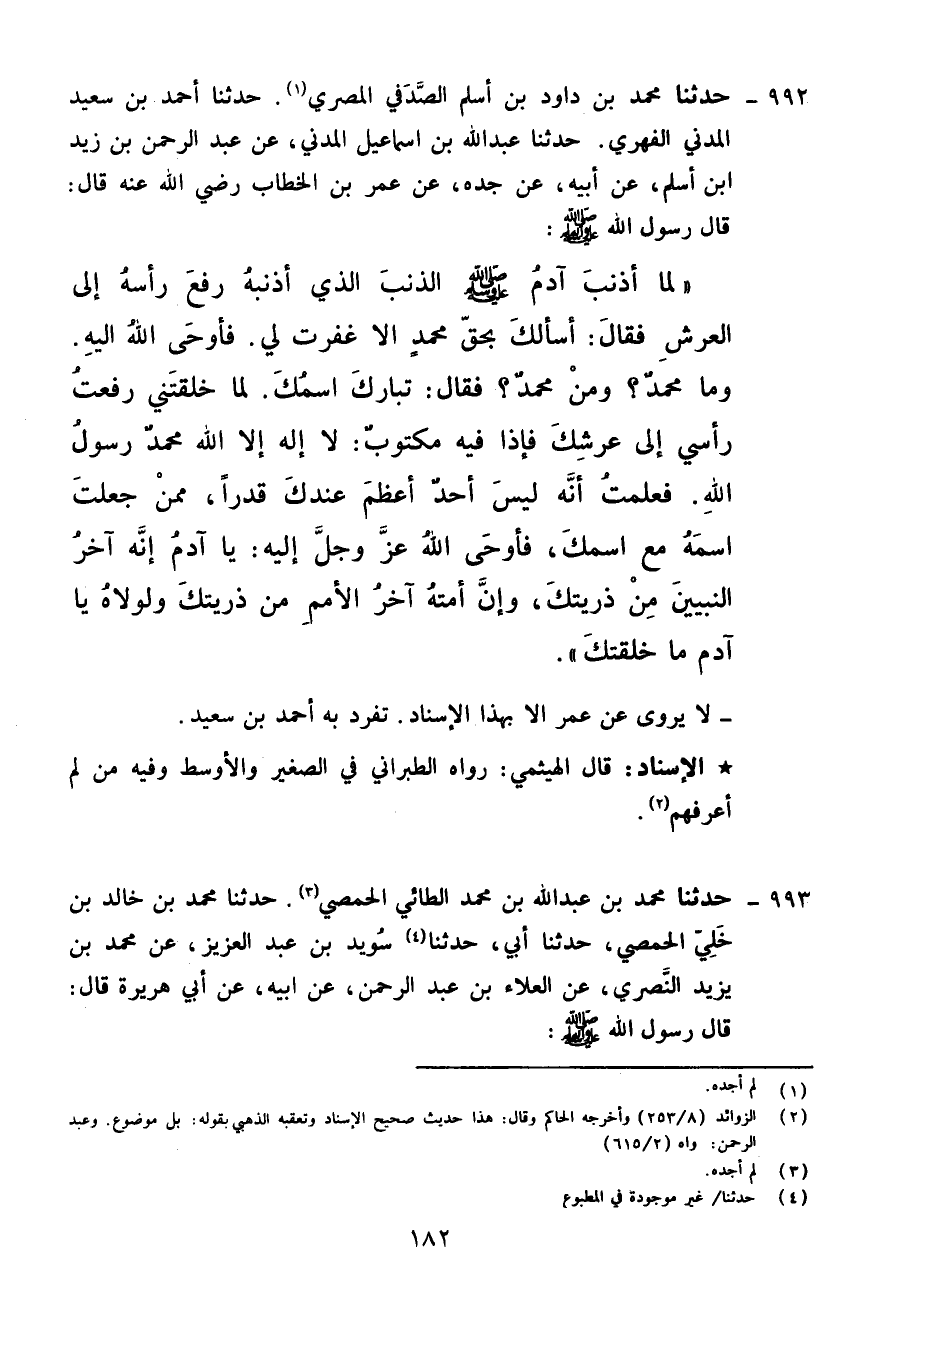 ٩٩٢ ـ حدثنا محمد بن داود بن أسلم الصَّدَفي المصري(١). حدثنا أحمد بن سعيد
المدني الفهري. حدثنا عبدالله بن اسماعيل المدني، عن عبد الرحمن بن زيد
ابن أسلم، عن أبيه، عن جده، عن عمر بن الخطاب رضي الله عنه قال:
قال رسول الله ﷺ :
« لما أذنبَ آدمُ ﷺ الذنبَ الذي أذنبهُ رفعَ رأسهُ إلى
العرشِ فقالَ: أسألكَ بحقّ محمدٍ الا غفرت لي. فأوحَى اللهُ اليهِ.
وما محمدٌ؟ ومنْ محمدٌ؟ فقال: تباركَ اسمُكَ. لما خلقتَني رفعتُ
رأسي إلى عرشِكَ فإذا فيه مكتوبٌ: لا إله إلا الله محمدٌ رسولُ
اللهِ. فعلمتُ أنَّه ليسَ أحدٌ أعظمَ عندكَ قدراً، ممنْ جعلتَ
اسمَهُ مع اسمكَ، فأوحَى اللهُ عزَّ وجلَّ إليه: يا آدمُ إنَّه آخرُ
النبيينَ مِنْ ذريتكَ، وإنَّ أمتهُ آخرُ الأممِ من ذريتكَ ولولاهُ يا
آدم ما خلقتكَ ».
ـ لا يروى عن عمر الا بهذا الإسناد. تفرد به أحمد بن سعيد.
★ الإسناد: قال الهيثمي: رواه الطبراني في الصغير والأوسط وفيه من لم
أعرفهم(٢).
٩٩٣ ـ حدثنا محمد بن عبدالله بن محمد الطائي الحمصي(٣). حدثنا محمد بن خالد بن
خَلِيّ الحمصي، حدثنا أبي، حدثنا(٤) سُويد بن عبد العزيز، عن محمد بن
يزيد النَّصري، عن العلاء بن عبد الرحمن، عن ابيه، عن أبي هريرة قال:
قال رسول الله ﷺ :
(١) لم أجده.
(٢) الزوائد (٢٥٣/٨) وأخرجه الحاكم وقال: هذا حديث صحيح الإسناد وتعقبه الذهبي بقوله: بل موضوع. وعبد
الرحمن: واه (٦١٥/٢)
(٣) لم أجده.
(٤) حدثنا/ غير موجودة في المطبوع
١٨٢